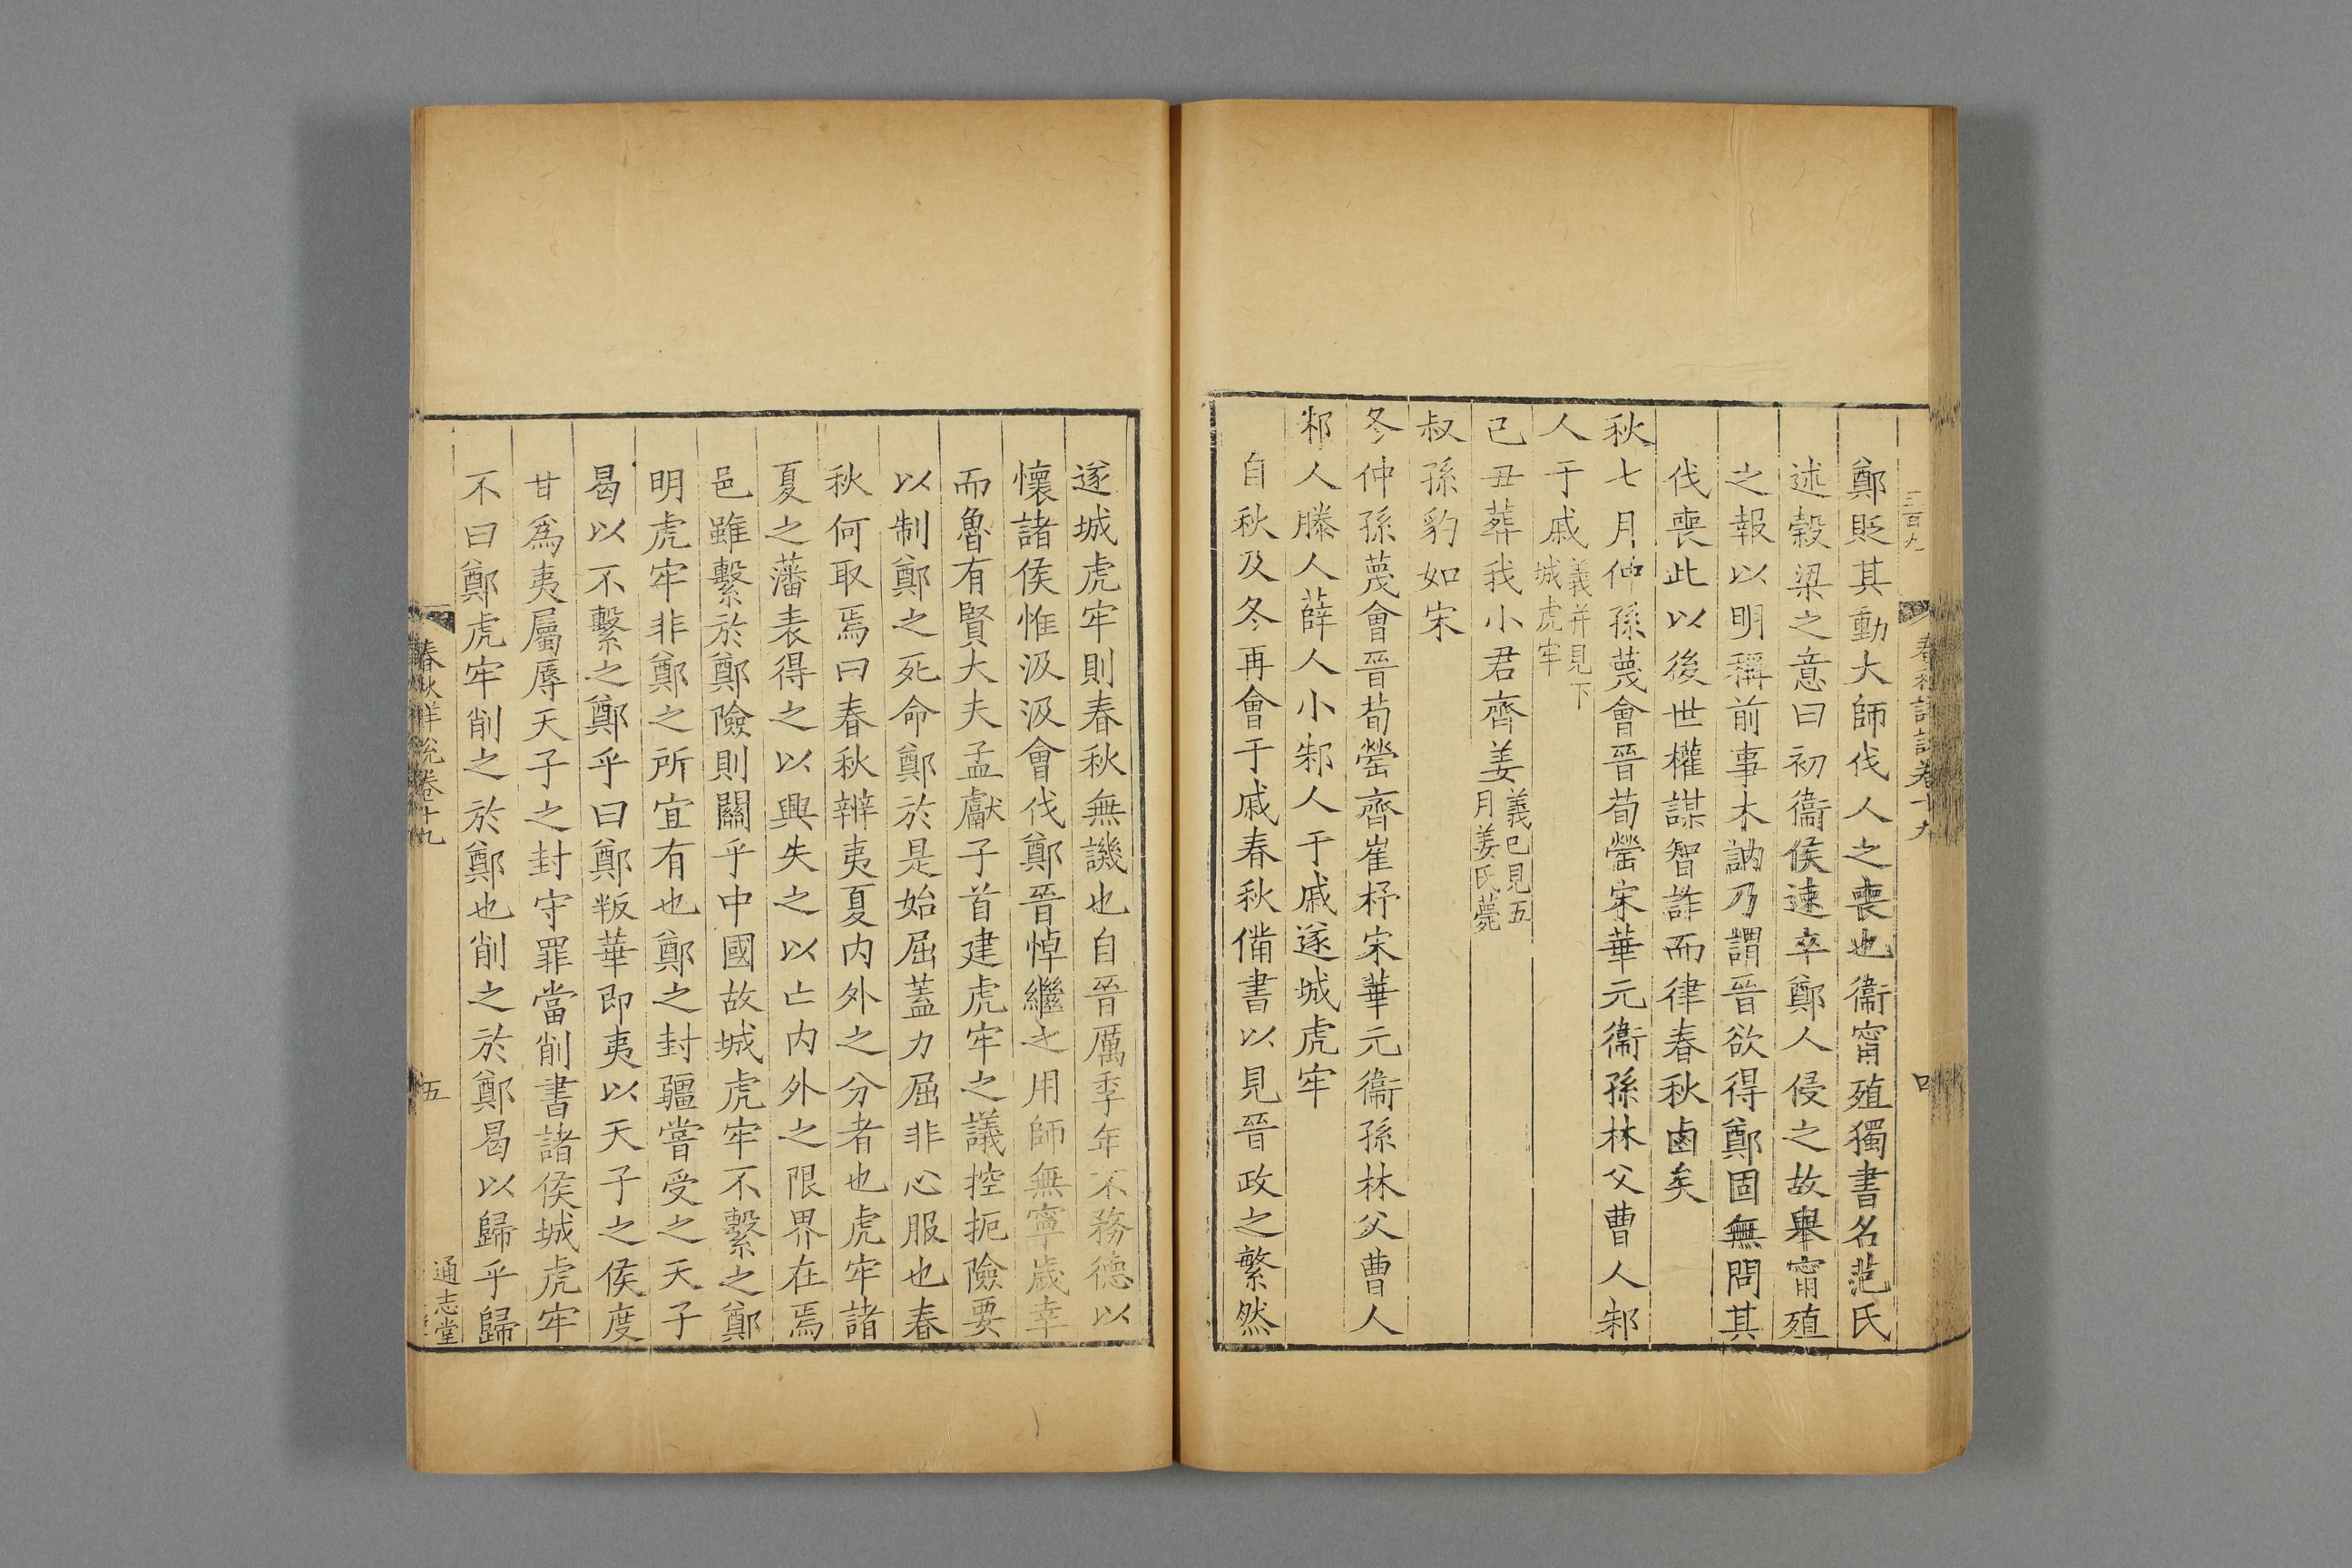 三百九
春秋詳說卷十九
四
鄭貶其動大師伐人之喪也衞甯殖獨書名范氏
述榖梁之意曰初衞侯速卒鄭人侵之故舉甯殖
之報以明稱前事木訥乃謂晉欲得鄭固無問其
伐喪此以後世權謀智詐而律春秋鹵矣
秋七月仲孫蔑會晉荀罃宋華元衞孫林父曹人邾
人于戚義并見下城虎牢
己丑葬我小君齊姜義已見五月姜氏薨
叔孫豹如宋
冬仲孫蔑會晉荀罃齊崔杼宋華元衞孫林父曹人
邾人滕人薛人小邾人于戚遂城虎牢
自秋及冬再會于戚春秋備書以見晉政之繁然
遂城虎牢則春秋無譏也自晉厲季年不務德以
懷諸侯惟汲汲會伐鄭晉悼繼之用師無寧歲幸
而魯有賢大夫孟獻子首建虎牢之議控扼險要
以制鄭之死命鄭於是始屈蓋力屈非心服也春
秋何取焉曰春秋辨夷夏内外之分者也虎牢諸
夏之藩表得之以興失之以亡内外之限界在焉
邑雖繫於鄭險則關乎中國故城虎牢不繫之鄭
明虎牢非鄭之所宜有也鄭之封疆嘗受之天子
曷以不繫之鄭乎曰鄭叛華即夷以天子之侯度
甘爲夷屬辱天子之封守罪當削書諸侯城虎牢
不曰鄭虎牢削之於鄭也削之於鄭曷以歸乎歸
春秋詳說卷十九
五
通志堂